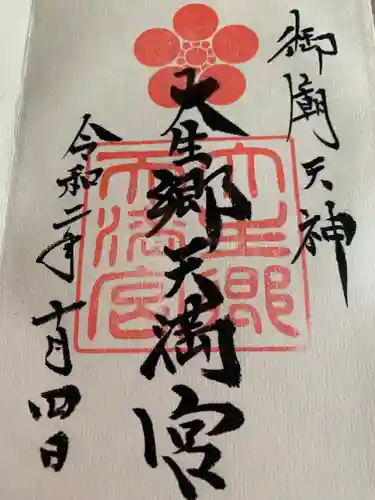 御廟天神
大生郷天満宮
令和二年
十月四日
大生郷
天満宮